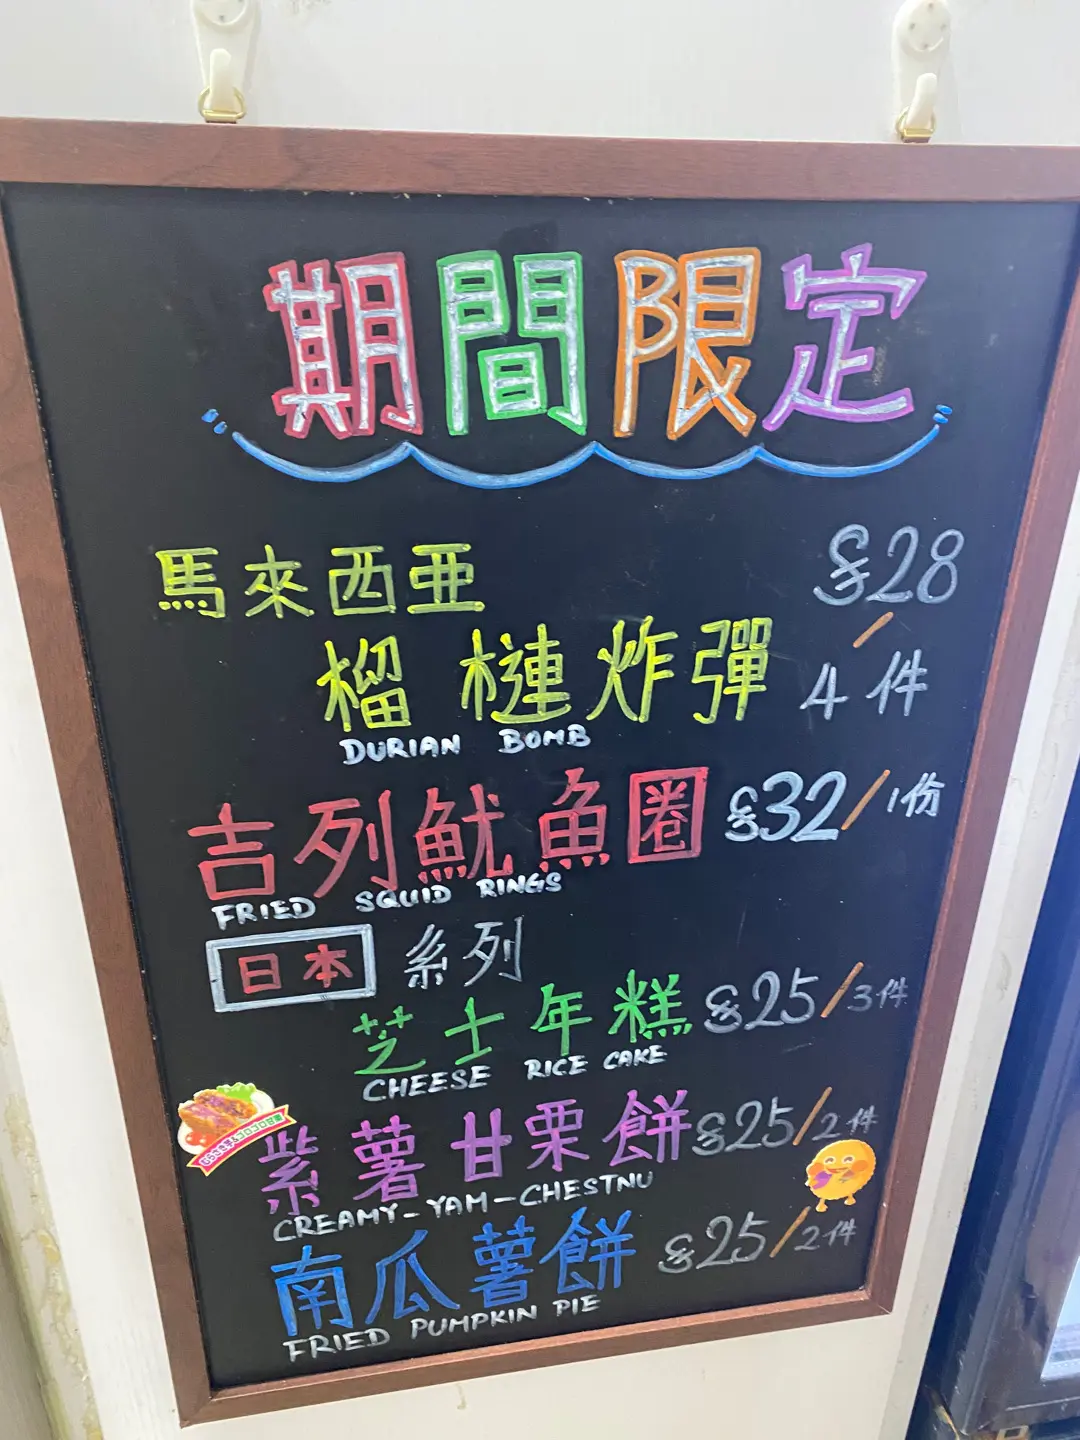 期間限定
馬來西亜 $28
榴槤炸彈 / 4件
DURIAN BOMB
吉列魷魚圈 $32/1份
FRIED SQUID RINGS
日本 系列
芝士年糕 $25/3件
CHEESE RICE CAKE
紫薯甘栗餅 $25/2件
CREAMY-YAM-CHESTNU
南瓜薯餅 $25/2件
FRIED PUMPKIN PIE